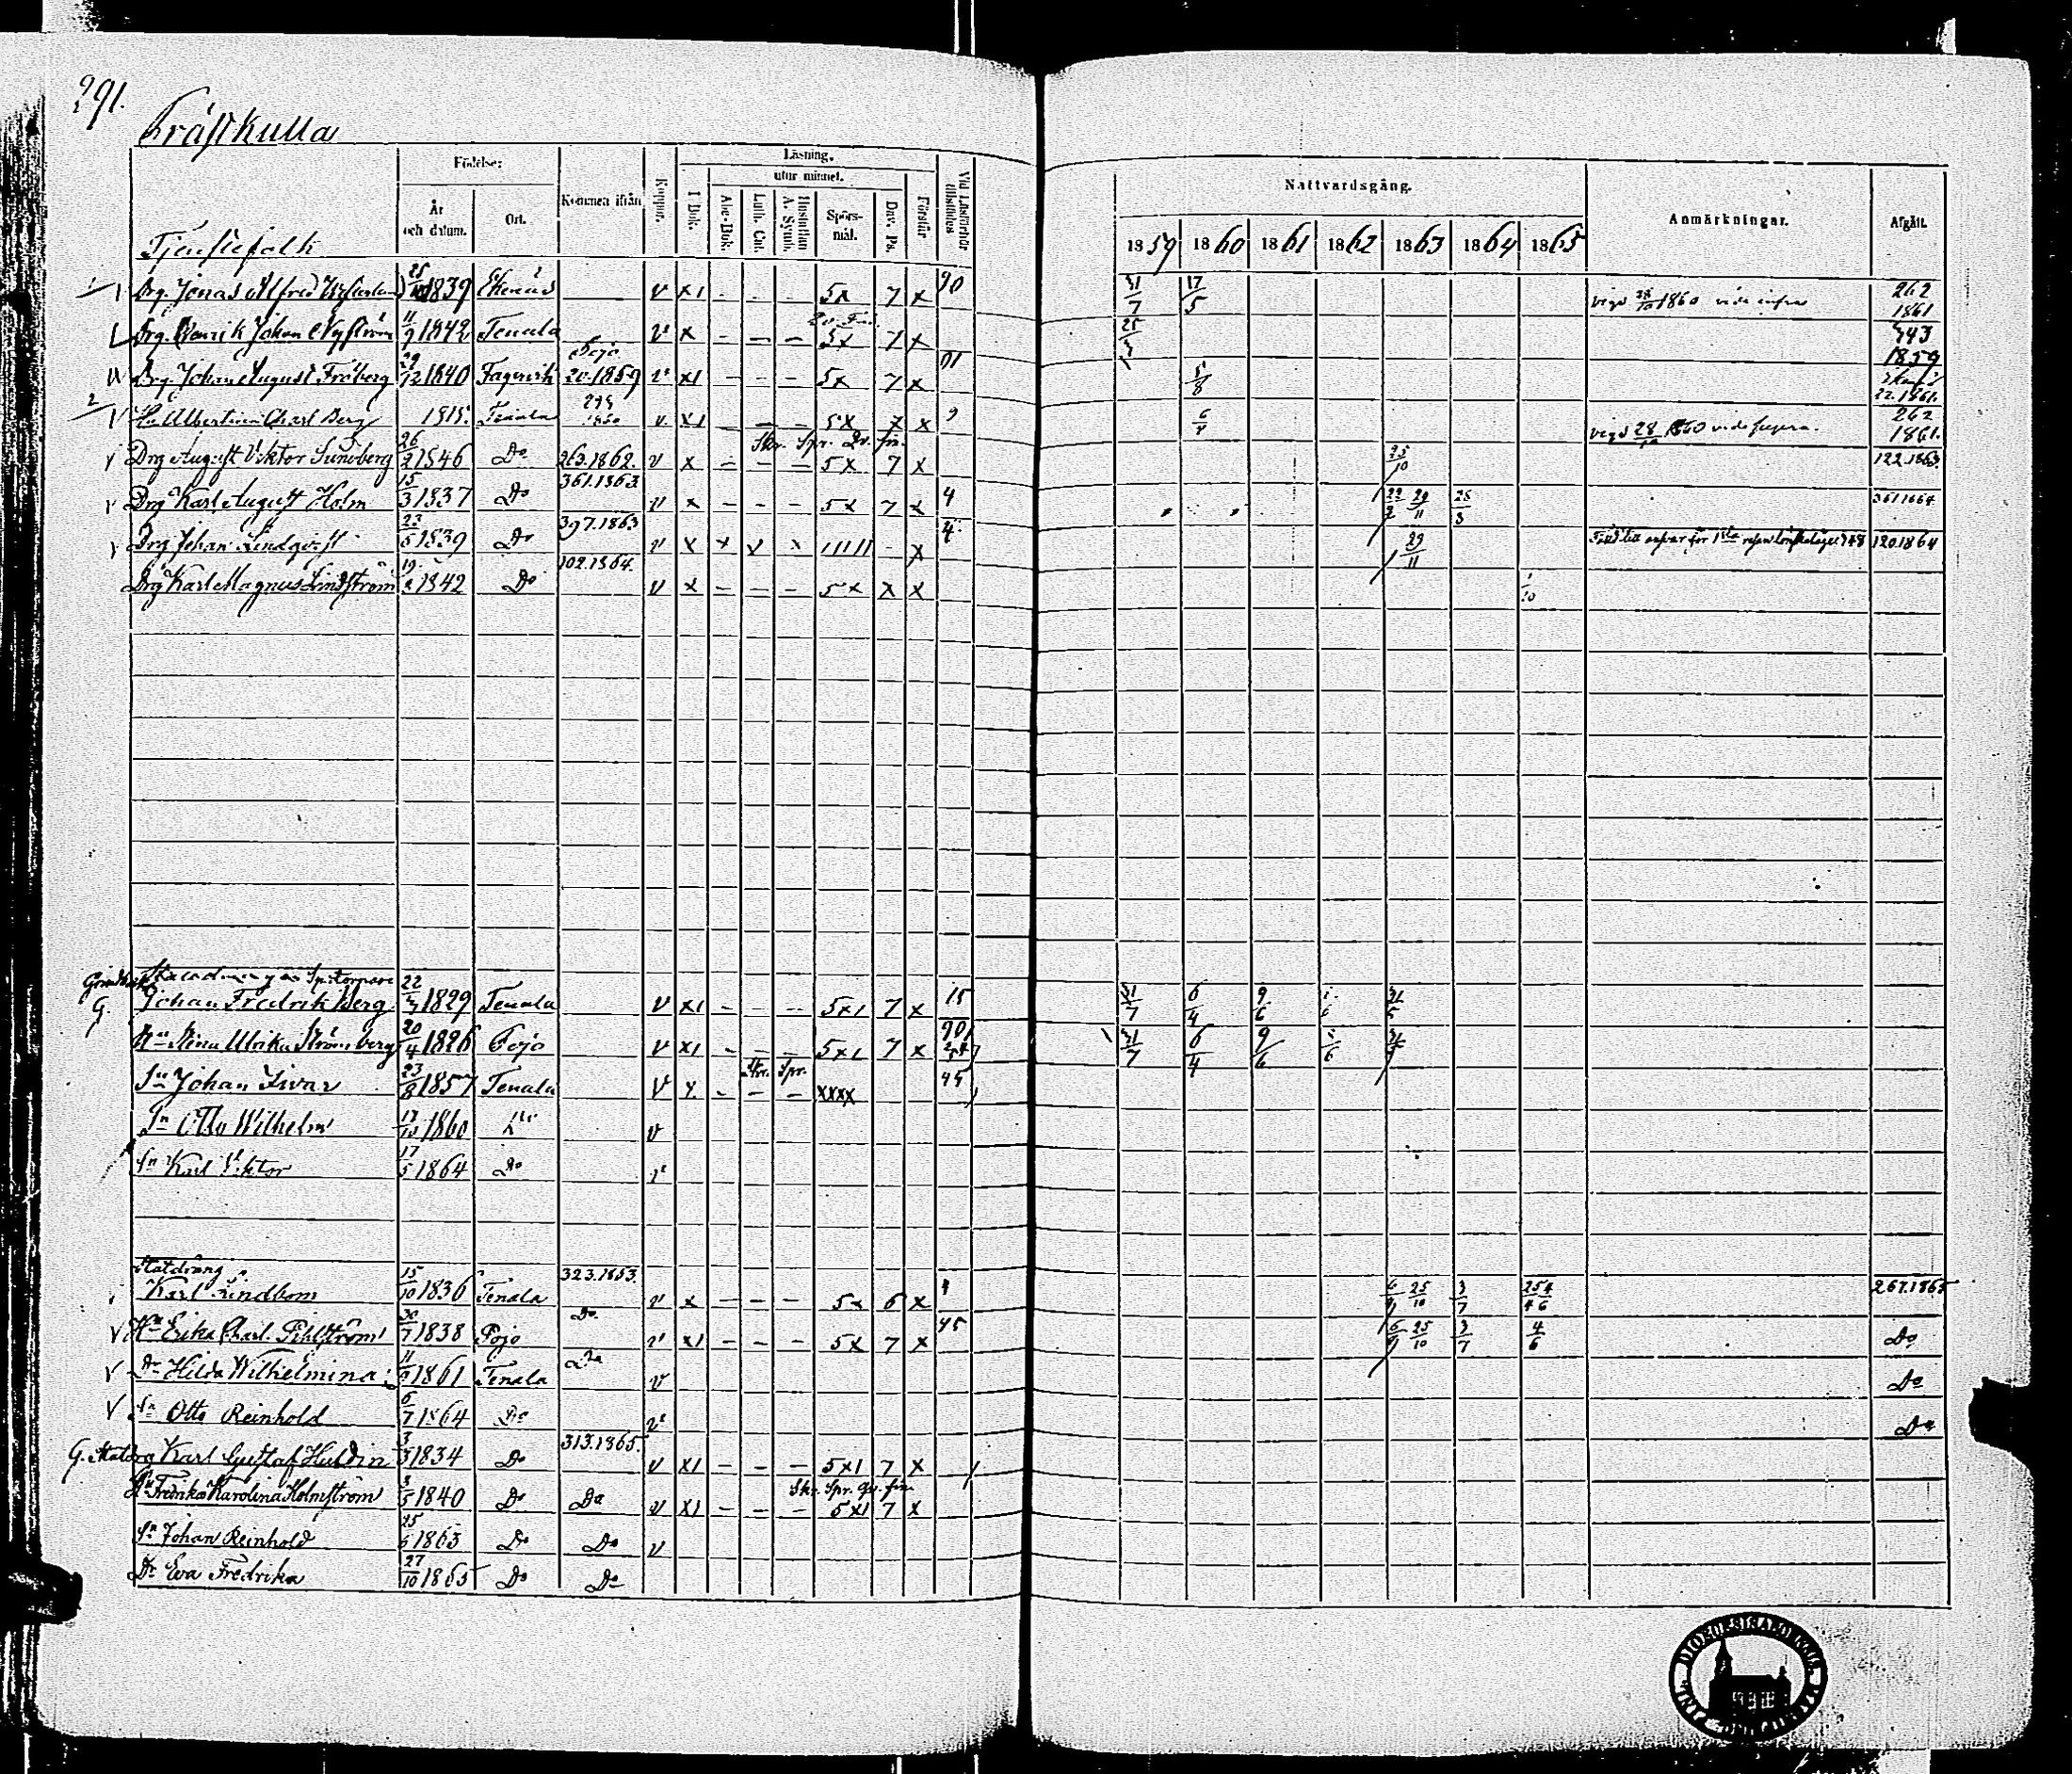 291.
Präskulla
Födelse:
Läsning.
utur minnet.
År och datum.
Ort.
Kommen ifrån
Koppor.
I Bok.
Abc-Bok.
Luth. Cat.
Hustaflan A. Symb.
Spörs-mål.
Dav. Ps.
Förstår
Vid Läsförhör tillstädes
Nattvardsgång.
Anmärkningar.
Afgått.
Tjenstefolk
1859 1860 1861 1862 1863 1864 1865
Drg. Jonas Alfred 1839 Ekenäs v x1 - - - 5x 7 x 90 31/7 17/5 vigd 28/10 1860 vide infra 262 1861
Drg. Henrik Johan Nyström 11/9 1842 Tenala v x - - - 5x 7 x 25/ 1859
Drg. Johan August Fröberg 29/12 1840 Fagervik Pojo 20.1859 v x1 - - - 5x 7 x 91 5/8 22.1861
Albertina Charl Berg 1818 Tenala 1860 v x1 - - 5x 7 x 9 6/4 vigd 28/10 1860 vide supra. 262 1861.
Skr. Spr. Qv. fin.
Drg August Viktor Sundberg 26/2 1846 Do 263.1862. v x - - - 5x 7 x 25/10 122.1863.
Drg Karl August Holm 15/3 1837 Do 361.1863 v x - - - 5x 7 x 4 22/2 29/11 28/3 361.1864
Drg Johan Lindqvist 23/5 1839 Do 397.1863 v x x v x 11111 - x 4 29/11 120.1864
Drg Karl Magnus Lindström 19/2 1842 Do 102.1864. v x - - - 5x x x 1/10
Spetorpare
G. Johan Fredrik Berg 22/7 1829 Tenala v x1 - - - 5x1 7 x 15 31/7 6/4 9/6 31/5
Hu Stina Ulrika Strömberg 20/4 1826 Pojo v x1 - - - 5x1 7 x 90 31/7 6/4 9/6
Skr. Spr.
Sn Johan Ivar 23/8 1857 Tenala v x - - - xxxx 45
Sn Otto Wilhelm 1860 Do v
Sn Karl Viktor 17/5 1864 Do v
Statdräng
Karl Lindbom 15/10 1836 Tenala 323.1863. v x - - - 5x 6 x 4 25/10 3/7 267.1865
Hu Erika Charl. Pihlström 30/7 1838 Pojo Do v x1 - - - 5x 7 x 45 25/10 3/7 4/6 Do
Dr Hilda Wilhelmina 1861 Tenala Do v Do
Sn Otto Reinhold 6/7 1864 Do v Do
G. Statdrg Karl Gustaf Huldin 1834 Do 313.1865. v x1 - - - 5x1 7 x
Skr. Spr. Qv. fin.
Hu Fredrika Karolina Holmström 1840 Do Do v x1 - - - 5x1 7 x
Sn Johan Reinhold 25/5 1863 Do Do v
Dr Eva Fredrika 27/10 1865 Do Do